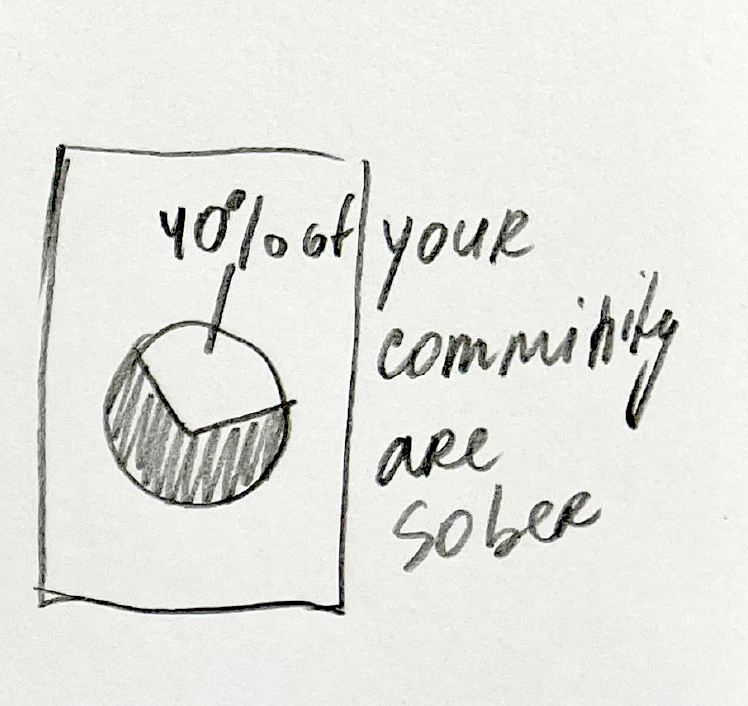 40% of your
comminity
are
sober